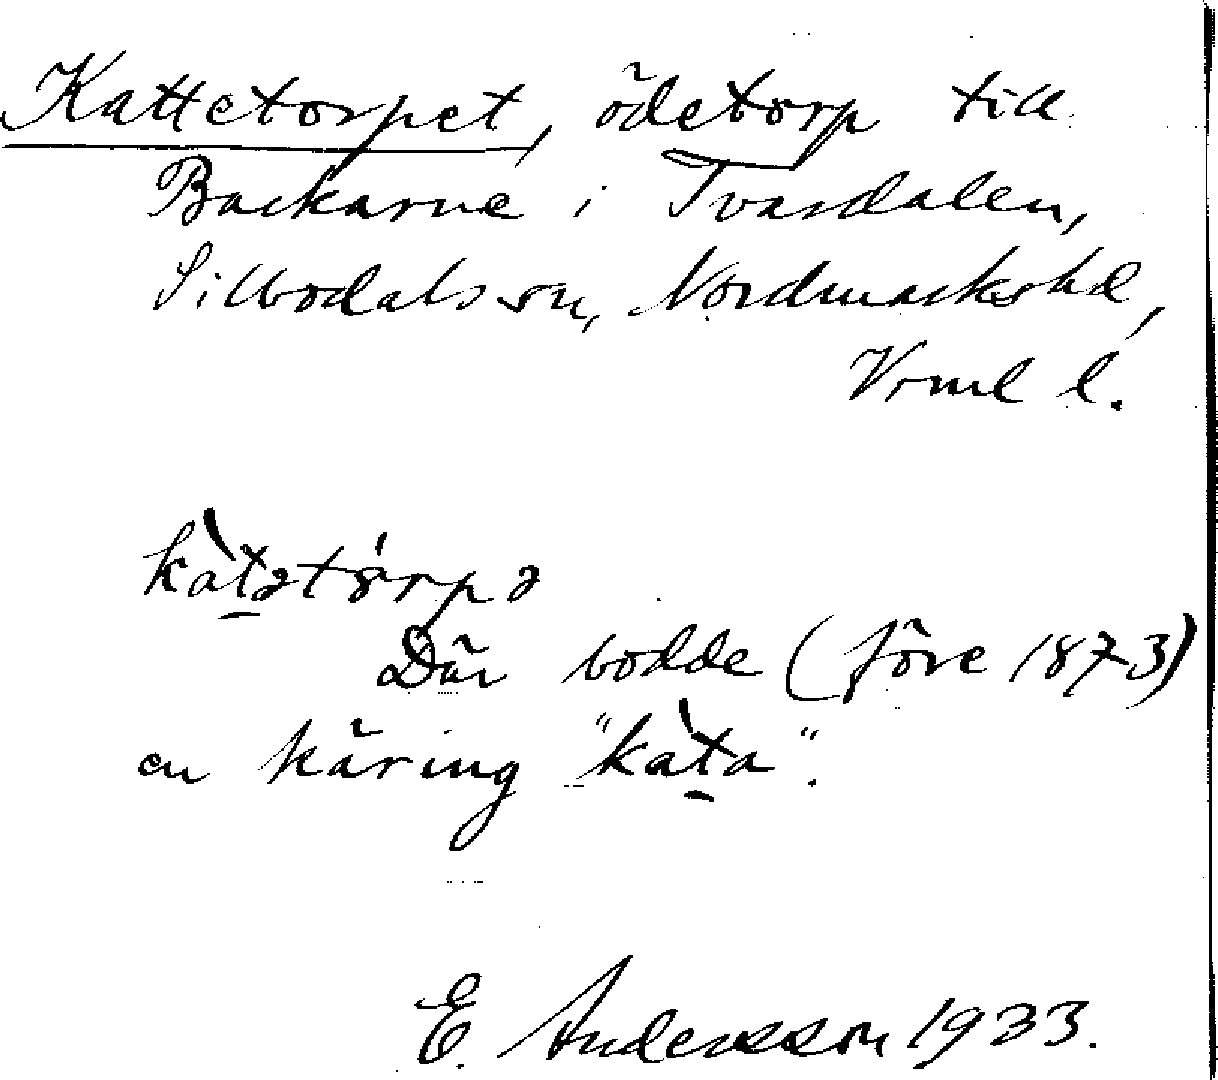 Kattetorpet, ödetorp till
Backarne i Tvärdalen,
Silbodals sn, Nordmarks hd,
Vrml l.
kàtətórpə
Där bodde (före 1873)
en käring "kàta".
E. Andersson 1933.